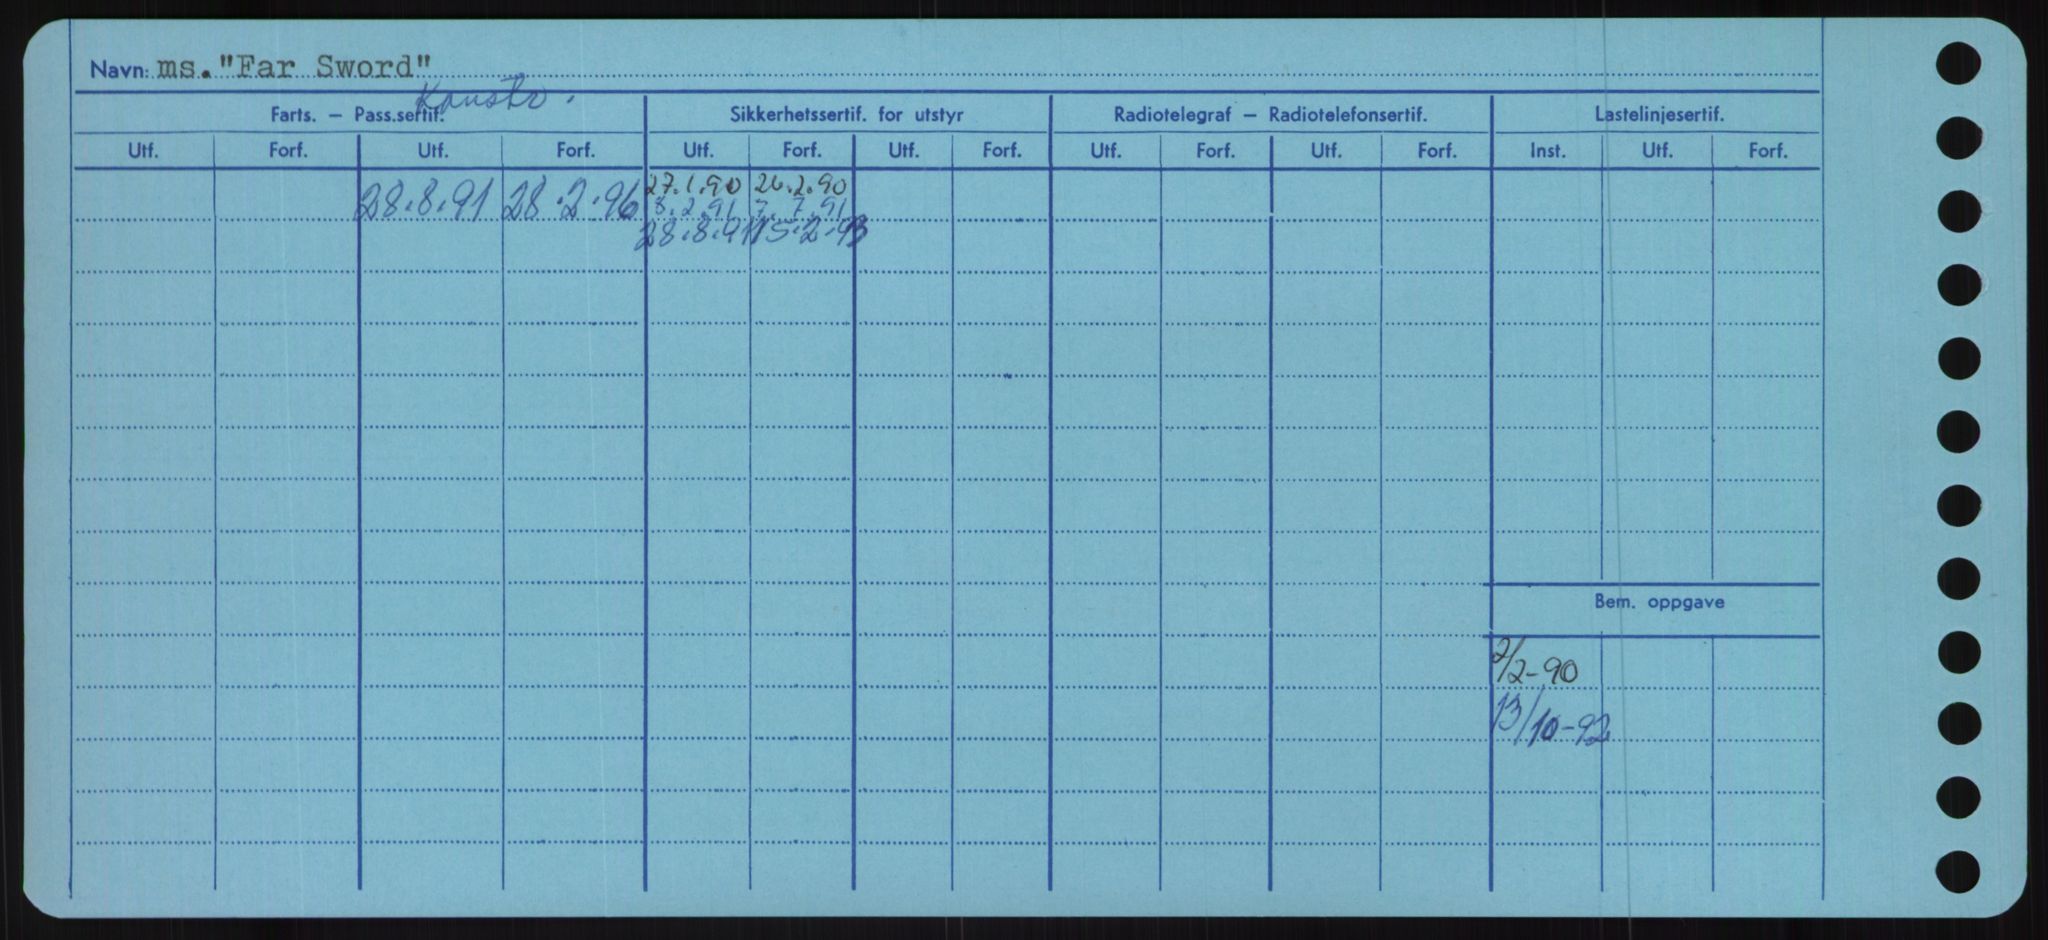 Navn: ms. "Far Sword"
Konstr.
Farts. – Pass.sertif. Sikkerhetssertif. for utstyr Radiotelegraf – Radiotelefonsertif. Lastelinjesertif.
Utf. Forf. Utf. Forf. Utf. Forf. Utf. Forf. Utf. Forf. Utf. Forf. Inst. Utf. Forf.
27.1.90 26.2.90
28.8.91 28.2.96 8.2.91 7.7.91
28.8.91 15.2.93
Bem. oppgave
2/2-90
13/10-92